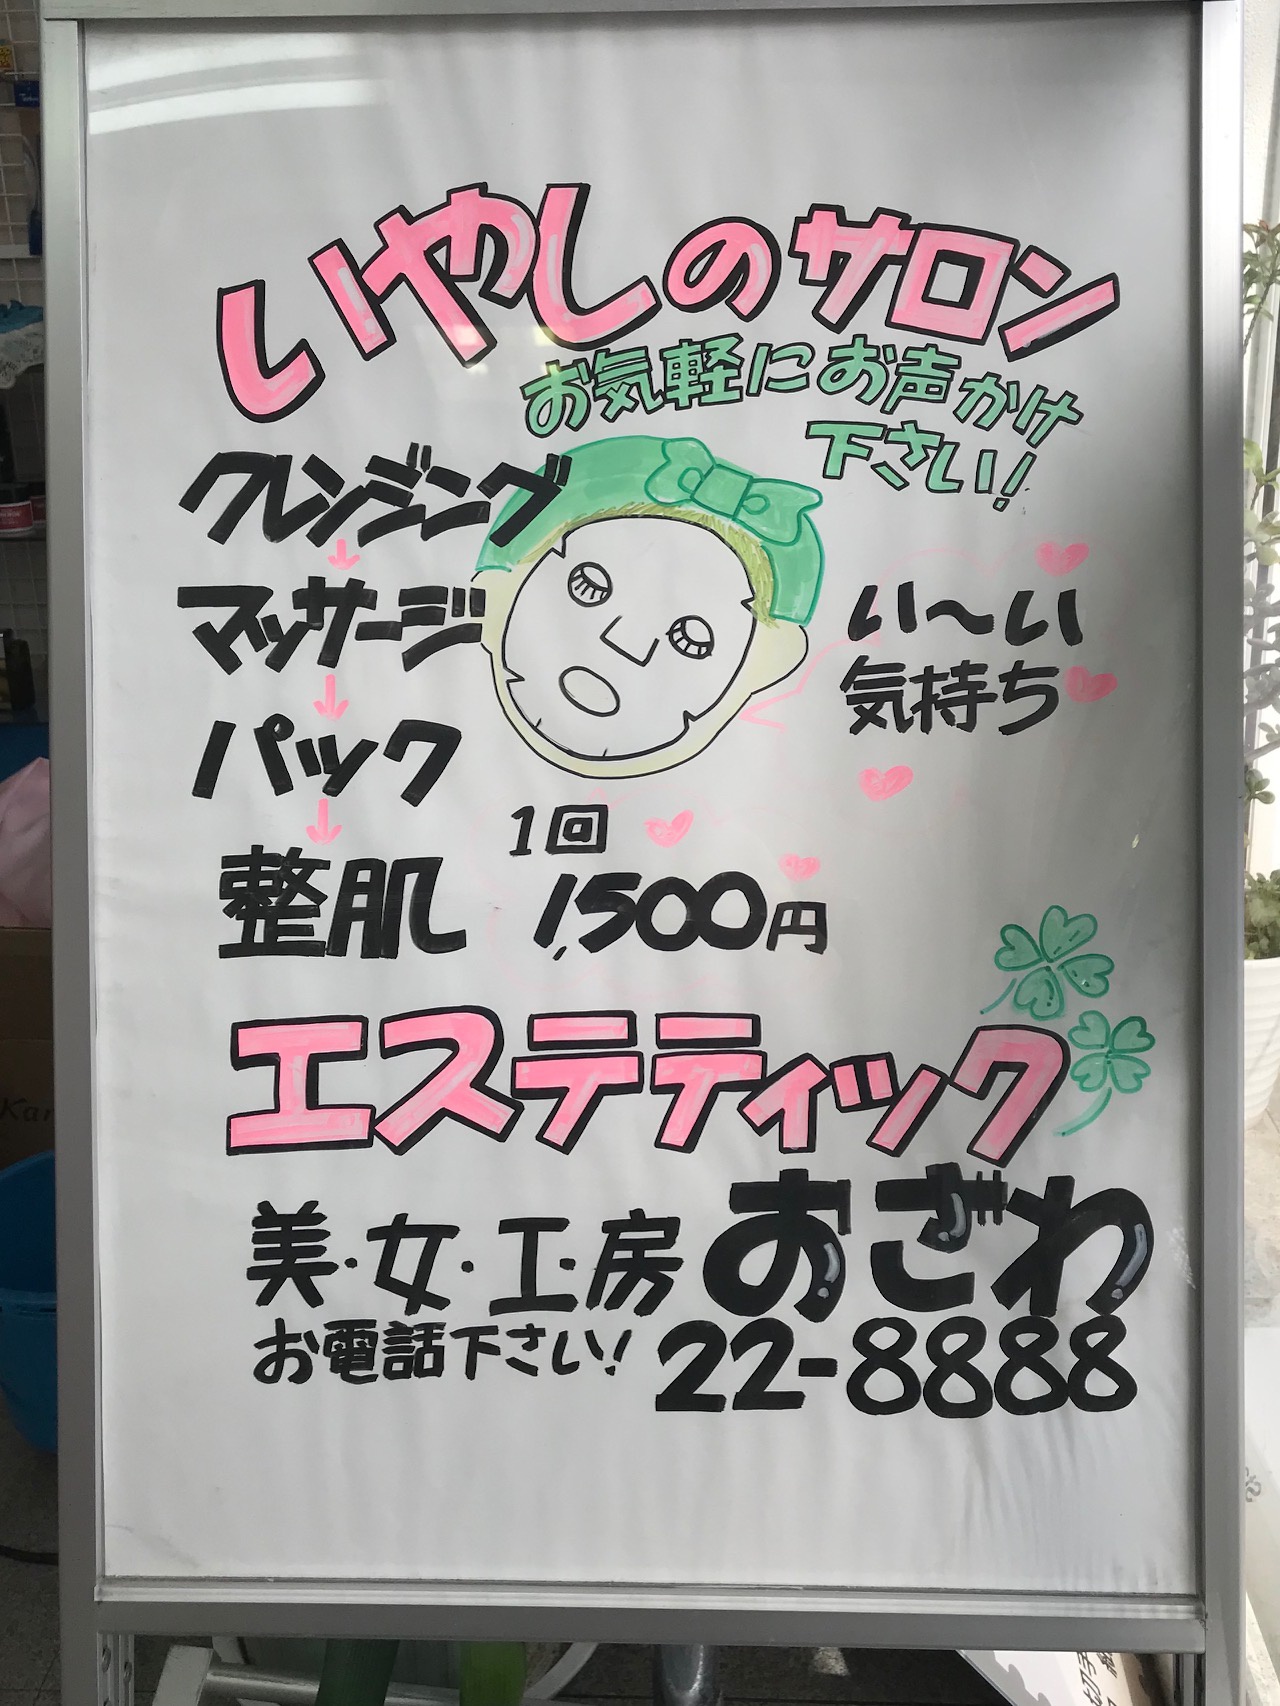 いやしのサロン
お気軽にお声かけ
下さい!
クレンジング
↓
マッサージ
↓
パック
↓
整肌
い〜い
気持ち
1回
1,500円
エステティック
美・女・工・房 おざわ
お電話下さい! 22-8888